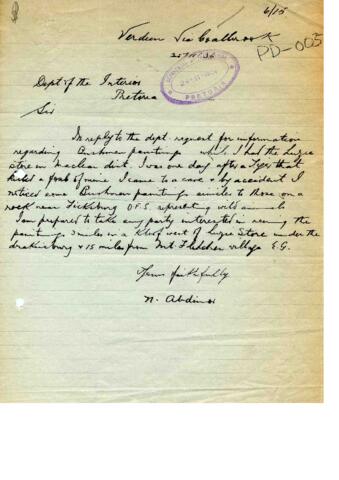 6/15
Verdun Via Coalbrook
PD-003
25/11/36
PRETORIA
Dept of the Interior
Pretoria
Sir
In reply to the dept. request for information
regarding Bushmen paintings when I had the
store in Maclear dist. I was one day after a tyger that
killed a foal of mine I came to a cave & by accident I
noticed some Bushmen paintings similar to those on a
rock near Ficksburg O.F.S. representing wild animals
I am prepared to take any party interested in seeing the
paintings 3 miles in a kloof west of Store under the
drakensburg & 15 miles from Mnt Fletcher village E.G.
Yours faithfully
N.